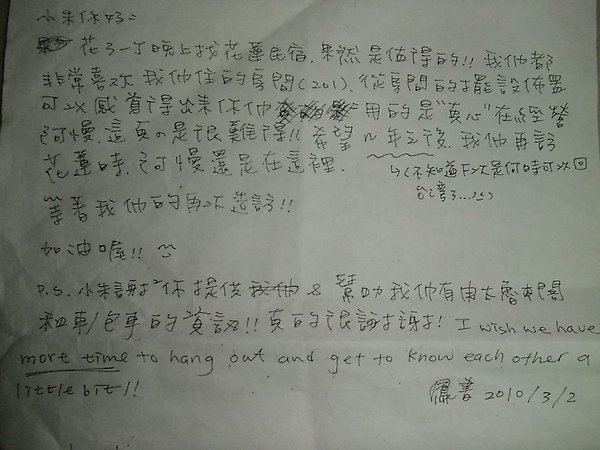 小朱你好=
花了一個晚上找花蓮民宿,果然是值得的!! 我們都
非常喜歡我們住的房間(201).從房間的擺設佈置
可以感覺得出來你們用的是"真心"在經營
阿慢.這真的是很難得!! 希望n年之後,我們再訪
花蓮時,阿慢還是在這裡.
↳(不知道下次是何時可以回
台灣了...)
等著我們的再次造訪!!
加油喔!!
P.S. 小朱謝謝你提供 & 幫助我們有由太魯閣
租車/包車的資訊!! 真的很謝謝! I wish we have
more time to hang out and get to know each other a
little bit!!
書 2010/3/2